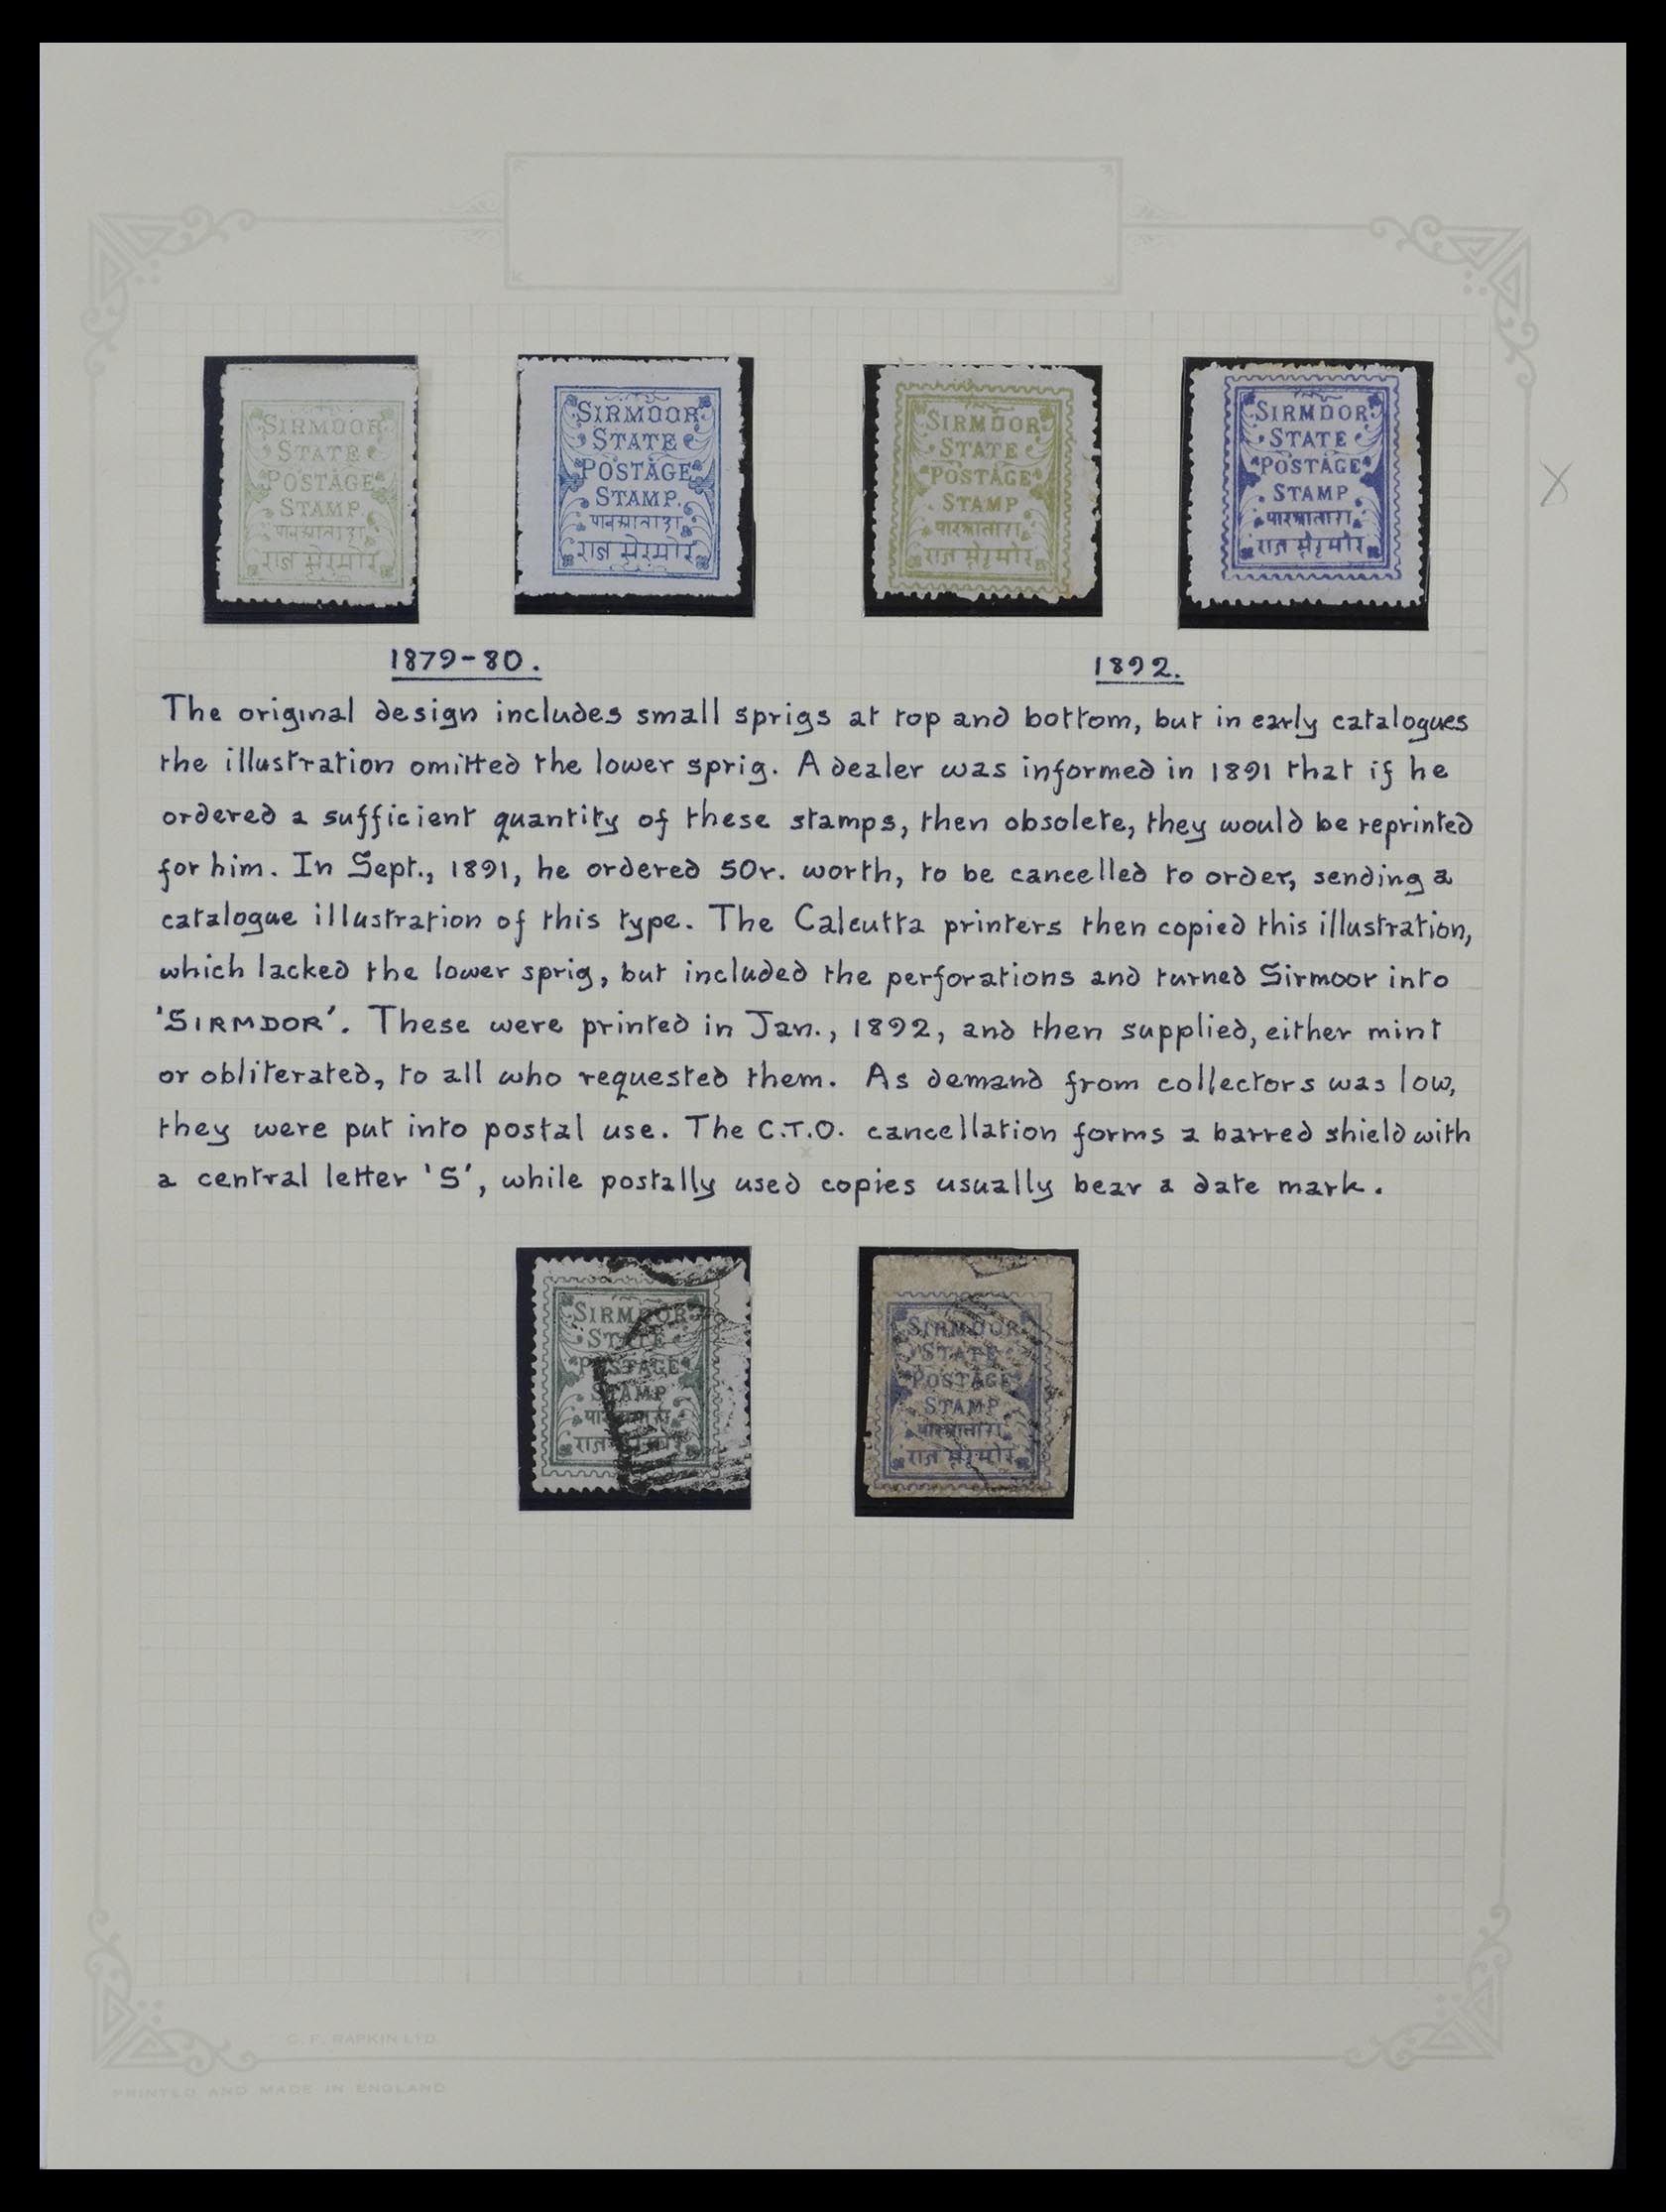 SIRMOOR
STATE
POSTAGE
STAMP.
राज सेरमोर
SIRMOOR
STATE
POSTAGE
STAMP.
राज सेरमोर
SIRMDOR
STATE
POSTAGE
STAMP
SIRMDOR
STATE
POSTAGE
STAMP
X
1879-80.
1892.
The original design includes small sprigs at top and bottom, but in early catalogues
the illustration omitted the lower sprig. A dealer was informed in 1891 that if he
ordered a sufficient quantity of these stamps, then obsolete, they would be reprinted
for him. In Sept., 1891, he ordered 50r. worth, to be cancelled to order, sending a
catalogue illustration of this type. The Calcutta printers then copied this illustration,
which lacked the lower sprig, but included the perforations and turned Sirmoor into
'SIRMDOR'. These were printed in Jan., 1892, and then supplied, either mint
or obliterated, to all who requested them. As demand from collectors was low,
they were put into postal use. The C.T.O. cancellation forms a barred shield with
a central letter 'S', while postally used copies usually bear a date mark.
SIRMDOR
STATE
POSTAGE
STAMP
SIRMDOR
STATE
POSTAGE
STAMP
C. F. RAPKIN LTD.
PRINTED AND MADE IN ENGLAND